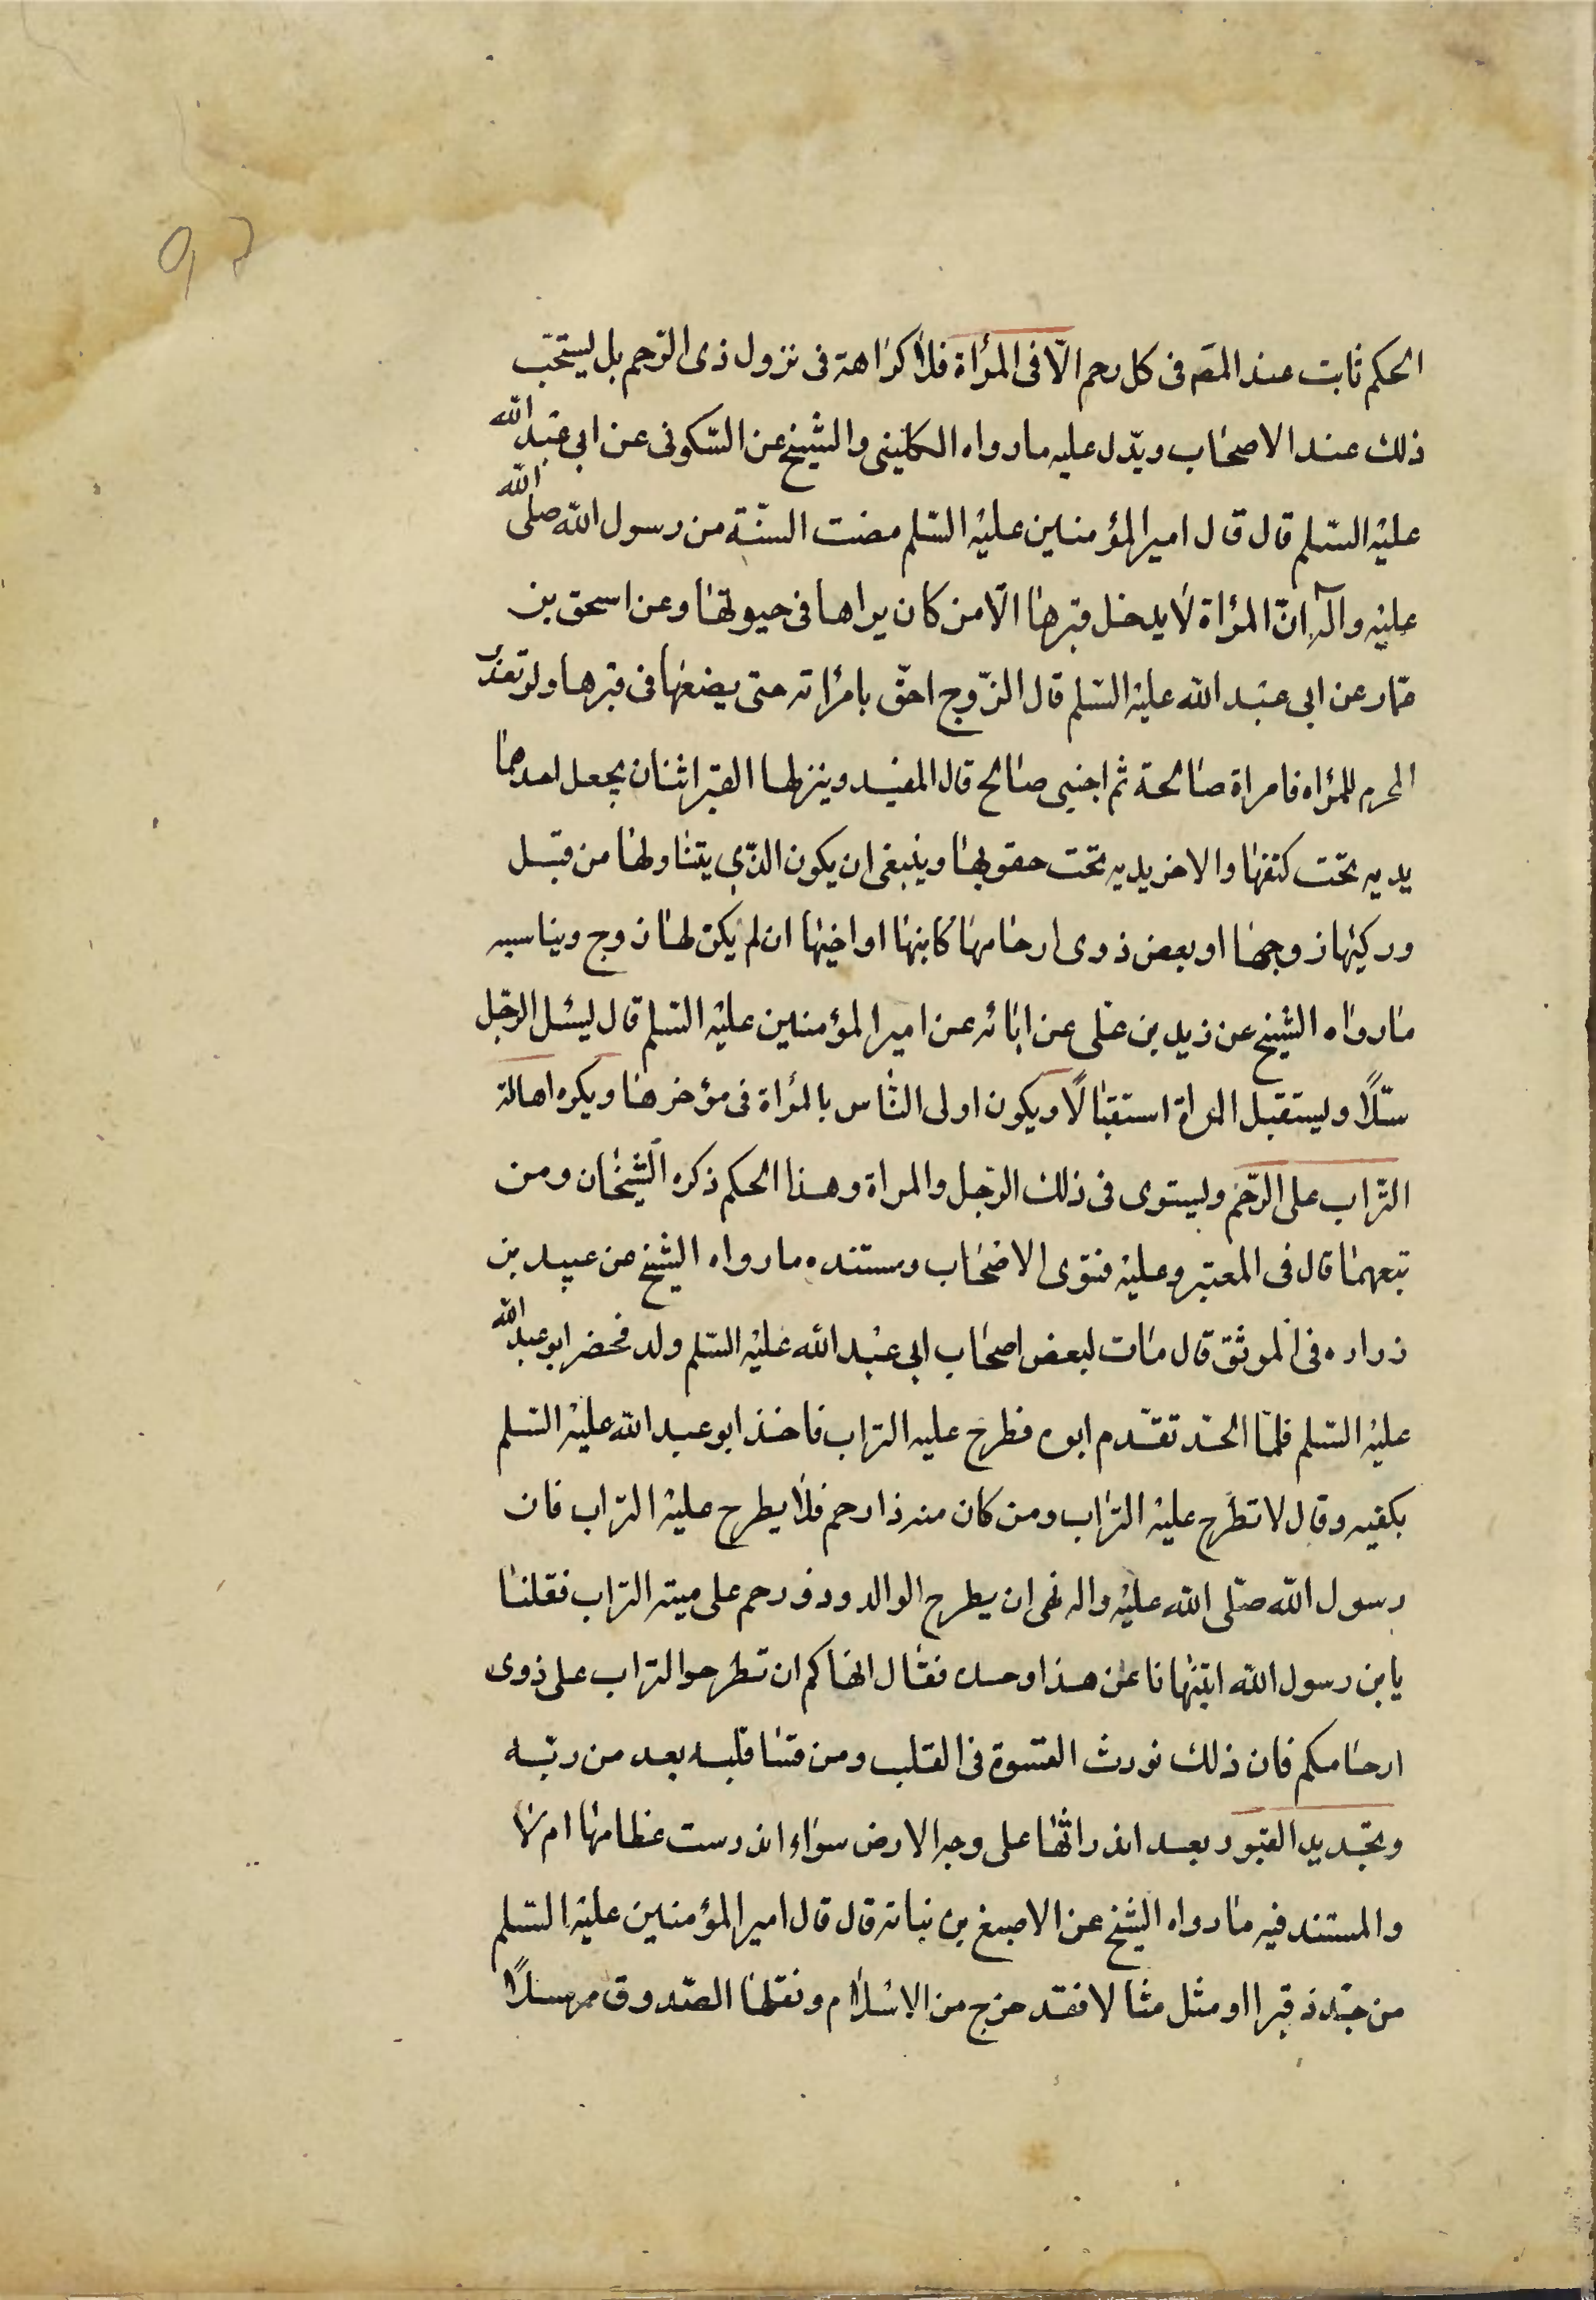 ٩٢
الحكم ثابت عند المص فى كل رحم الّا فى المرأة فلا كراهة فى نزول ذى الرّحم بل يستحبّ
ذلك عند الاصحاب ويدّل عليه ما رواه الكلينى والشيخ عن السّكونى عن ابى عبد الله
عليه السّلم قال قال امير المؤمنين عليه السّلم مضت السنّة من رسول الله صلى الله
عليه وآله انّ المرأة لا يدخل قبرها الّا من كان يراها فى حيوتها وعن اسحق بن
عمّار عن ابى عبد الله عليه السّلم قال الزّوج احقّ بامرأته حتى يضعها فى قبرها ولو تعذر
المحرم للمرأه فامراة صالحة ثم اجنبى صالح قال المفيد وينزلها القبر اثنان يجعل احدهما
يديه تحت كتفها والاخر يديه تحت حقويها وينبغى ان يكون الذّي يتناولها من قبل
وركيها زوجها او بعض ذوى ارحامها كابنها او اخيها ان لم يكن لها زوج ويناسبه
ما رواه الشيخ عن زيد بن على عن ابائه عن امير المؤمنين عليه السّلم قال ليسّل الرجّل
سّلاً وليستقبل المراة استقبالاً ويكون اولى النّاس بالمرأة فى مؤخرها ويكره اهالة
التّراب على الرّحم وليستوى فى ذلك الرّجل والمراة وهذا الحكم ذكره الشّيخان ومن
تبعهما قال فى المعتبر وعليه فتوى الاصحاب ومستنده ما رواه الشيخ عن عبيد بن
زراره فى الموثق قال مات لبعض اصحاب ابى عبد الله عليه السّلم ولد فحضر ابو عبد الله
عليه السّلم فلمّا الحدّ تقدّم ابوه فطرح عليه التراب فاخذ ابو عبد الله عليه السّلم
بكفيه وقال لا تطرح عليه التراب ومن كان منه ذا رحم فلا يطرح عليه التراب فان
رسول الله صلّى الله عليه واله نهى ان يطرح الوالد وذو رحم على ميته التراب فقلنا
يابن رسول الله اتنهانا عن هذا وحده فقال انهاكم ان تطرحوا التراب على ذوى
ارحامكم فان ذلك نورث القسوة فى القلب ومن قسا قلبه بعد من ربّه
وتجديد القبور بعد اندراثها على وجه الارض سواء اندرست عظامها ام لا
والمستند فيه ما رواه الشيخ عن الاصبغ بن نباته قال قال امير المؤمنين عليه السّلم
من جدّد قبرا او مثل مثالا فقد خرج من الاسلام ونقلها الصّدوق مرسلاً